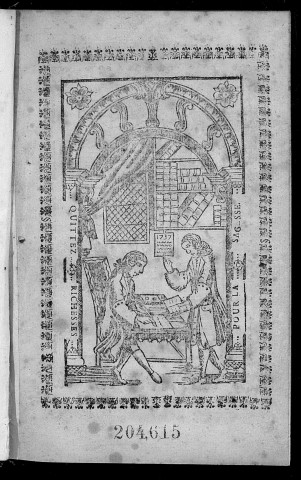 QUITTEZ LES RICHESSES
POUR LA SAGESSE
204615